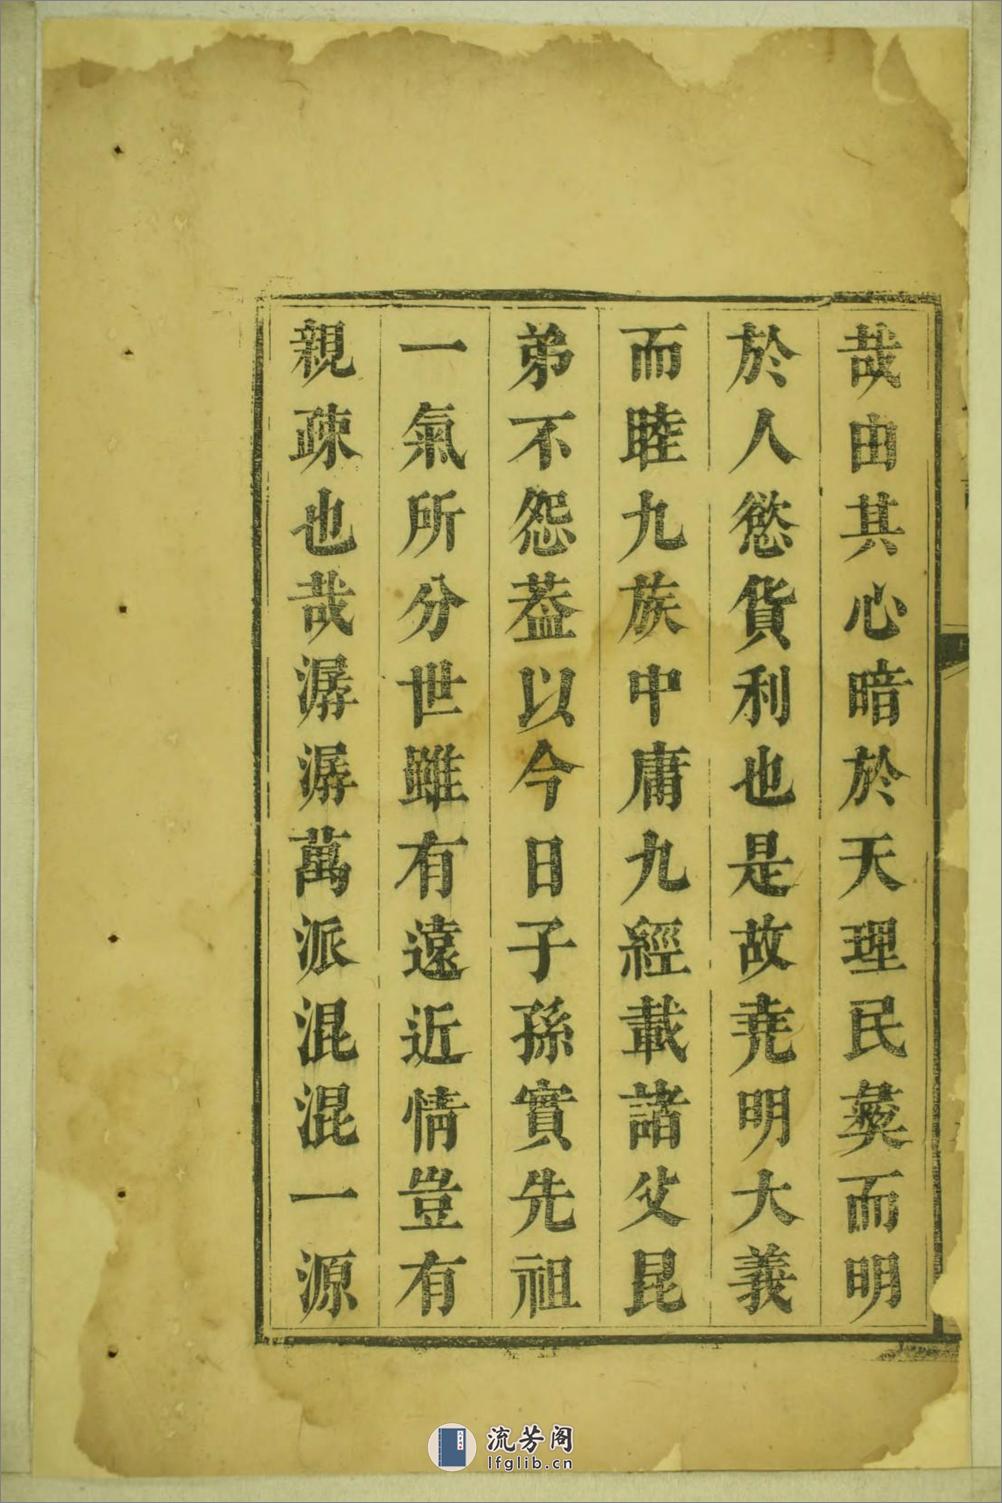 哉由其心暗於天理民彝而明
於人慾貨利也是故尭明大義
而睦九族中庸九經載諸父昆
弟不怨葢以今日子孫實先祖
一氣所分世雖有遠近情豈有
親疎也哉潺潺萬派混混一源
流芳阁
lfglib.cn